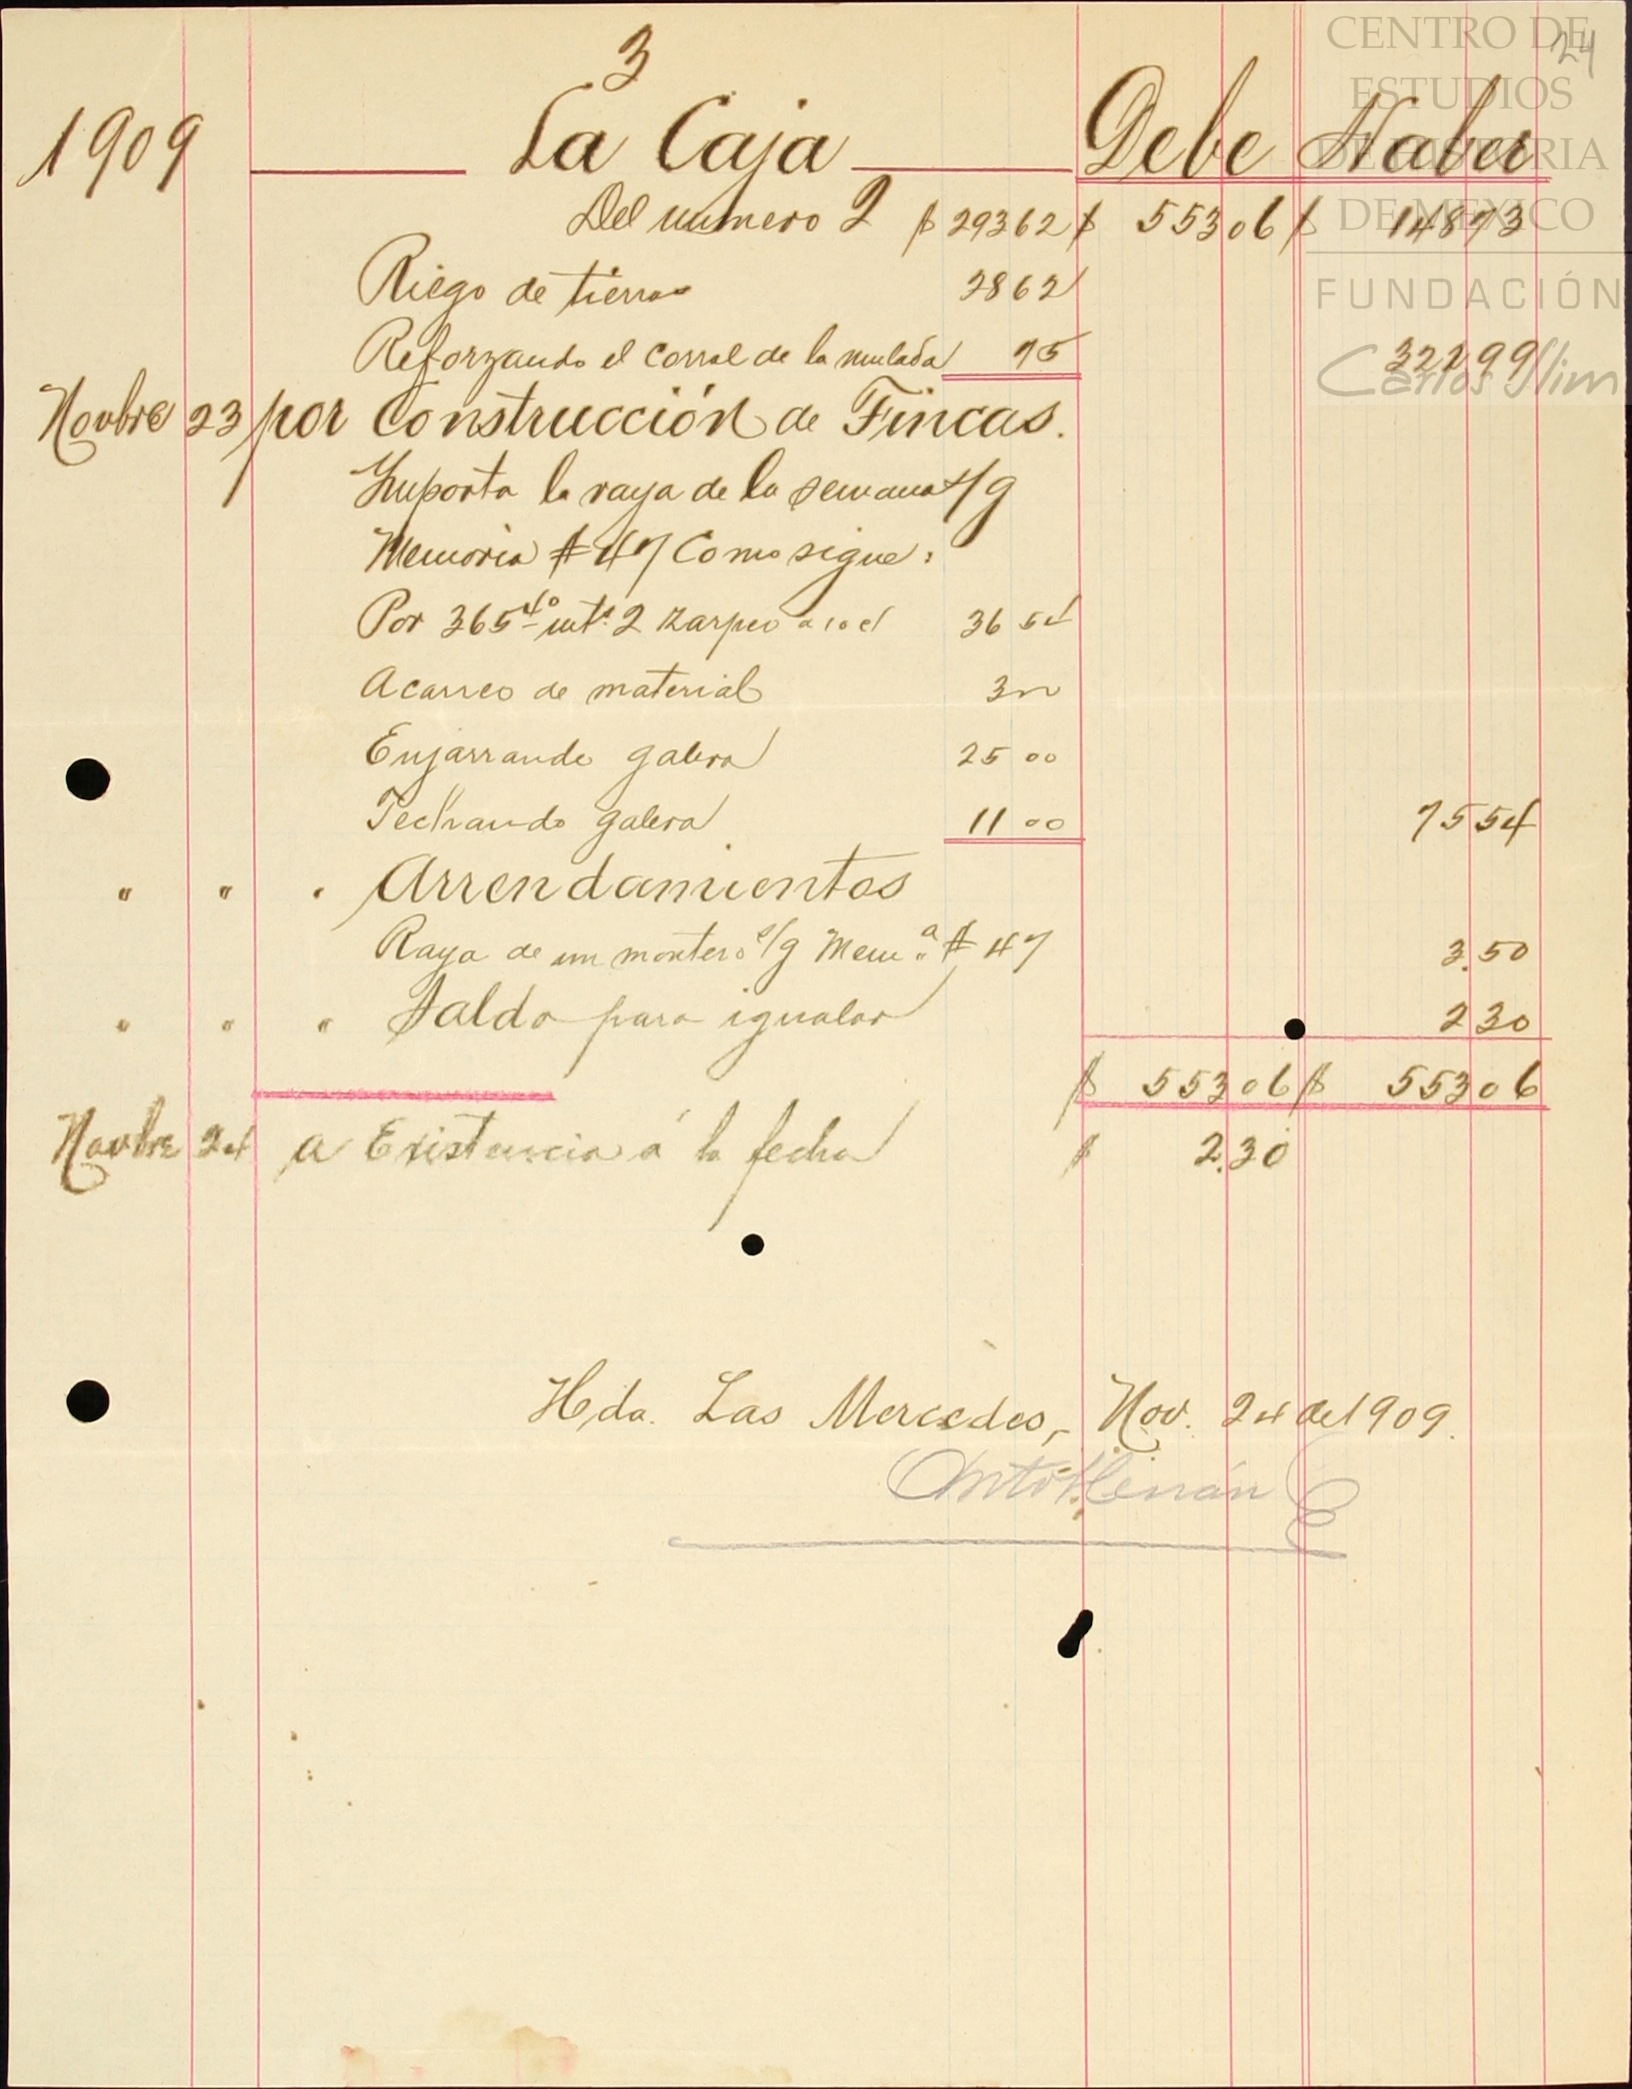 3
24
1909 La Caja Debe Haber
Del numero 2 $ 293 62 $ 553 06 $ 148 73
Riego de tierras 28 62
Reforzando el corral de la mulada 75 322 99
Novbre 23 por Construcción de Fincas.
Importa la raya de la semana s/g
Memoria # 47 Como sigue:
Por 365 40 mts. 2 zarpeo a 10 c/ 36 54
Acarreo de material 3 00
Enjarrando galera 25 00
Techando galera 11 00 75 54
" " " Arrendamientos
Raya de un montero s/g Mem.a # 47 3.50
" " " Saldo para igualar 2 30
$ 553 06 $ 553 06
Novbre 24 a Existencia á la fecha $ 2.30
Hda. Las Mercedes, Nov. 24 de 1909.
CENTRO DE
ESTUDIOS
DE HISTORIA
DE MEXICO
FUNDACIÓN
Carlos Slim